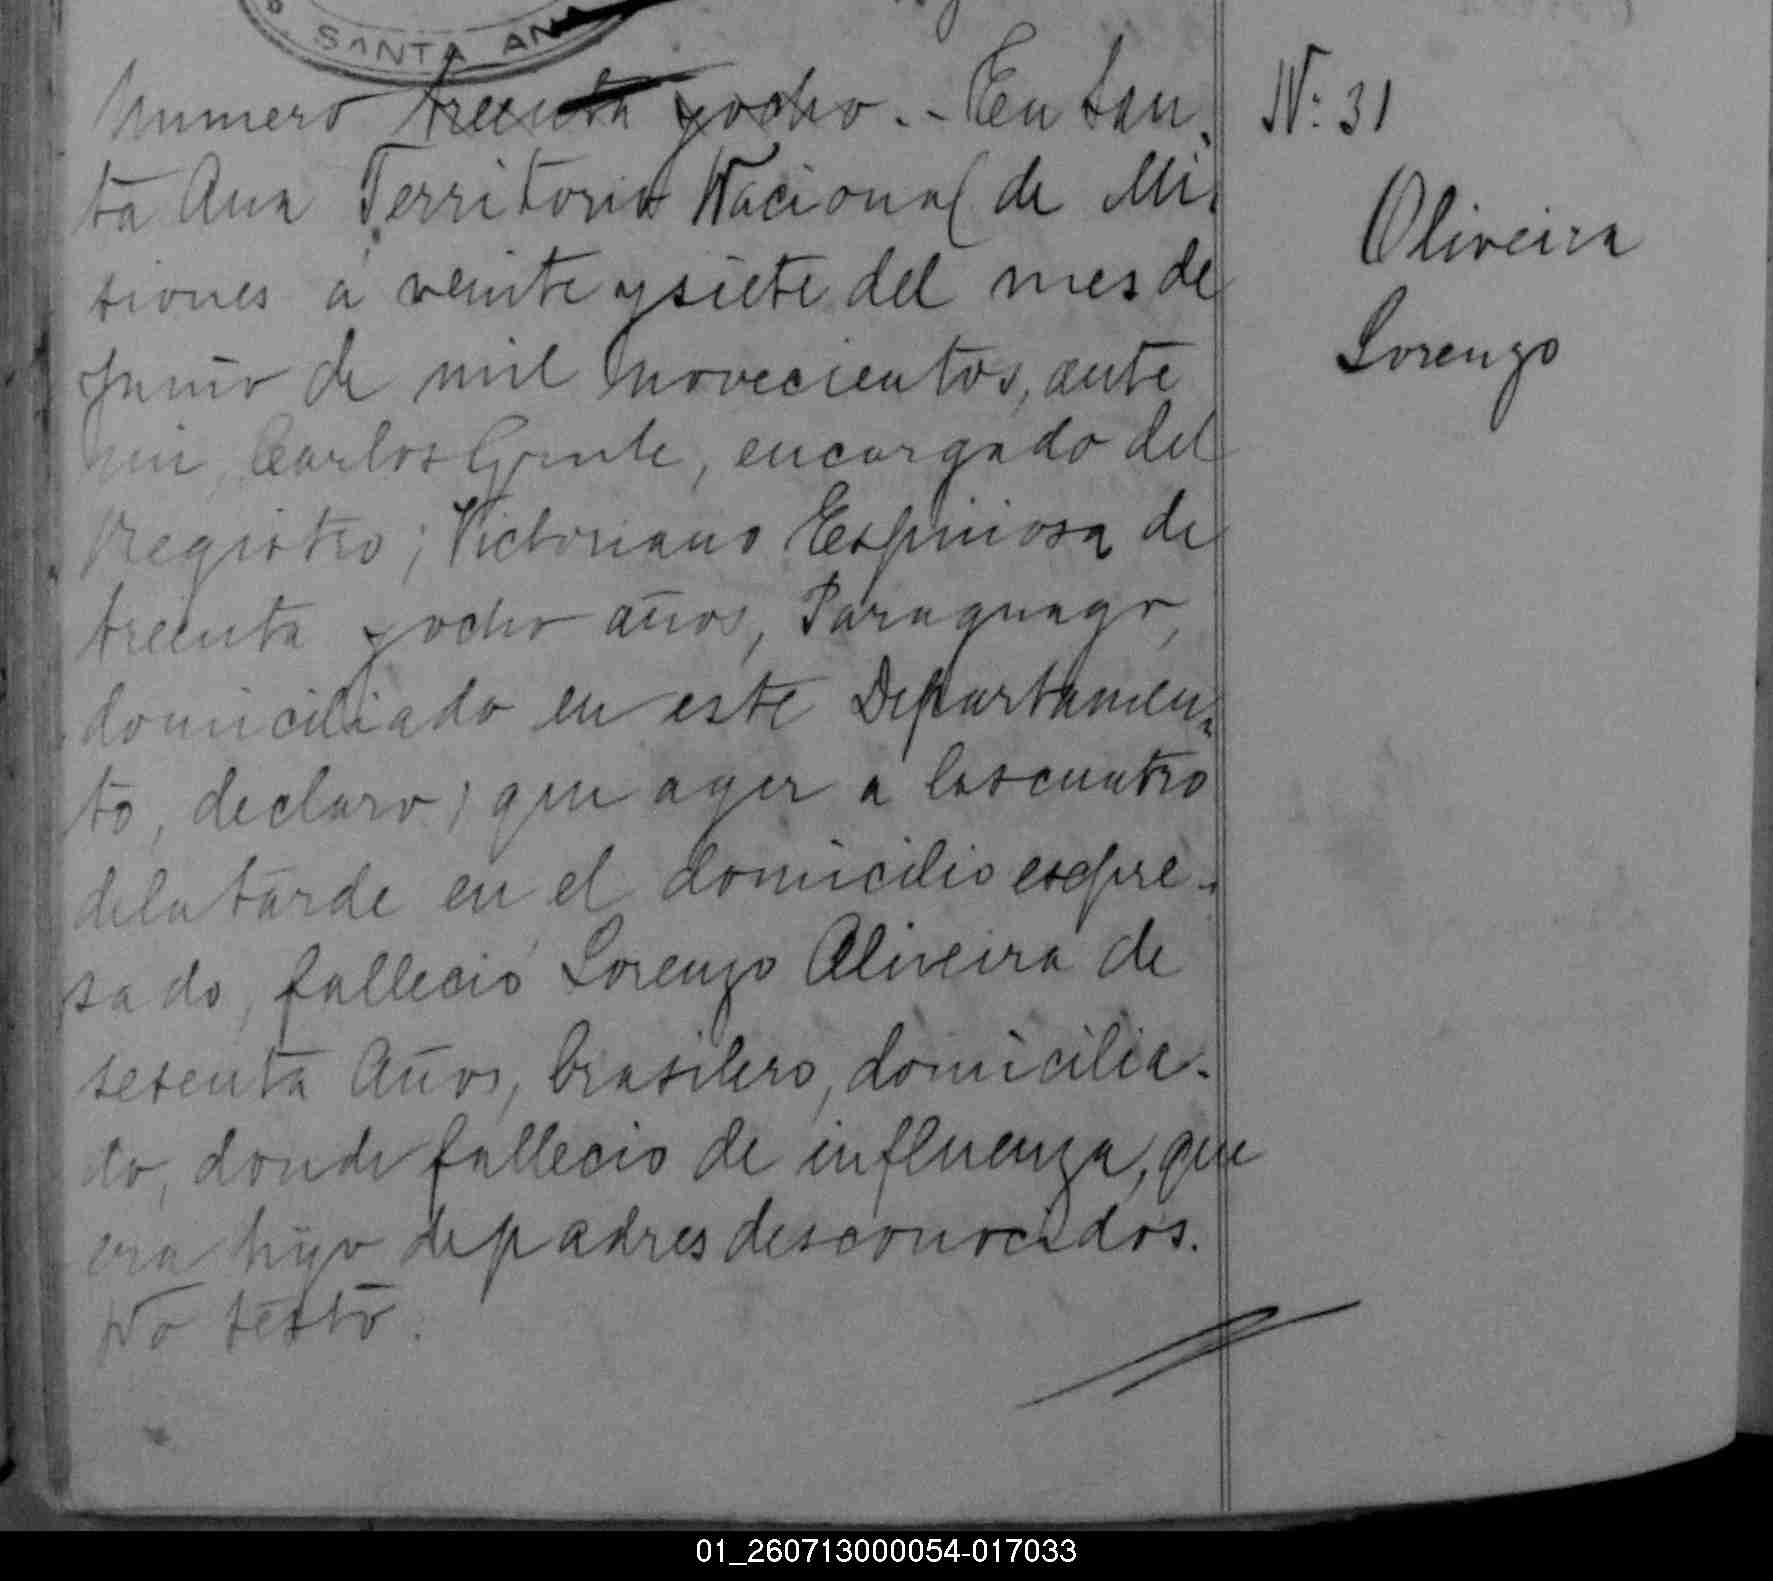 SANTA ANA
Numero treenta y ocho. - En San-
ta Ana Territorio Nacional de Mi-
siones a veinte y siete del mes de
Junio de mil novecientos, ante
mi, Carlos , encargado del
Registro; Victoriano Espiniosa de
treenta y ocho años, Paraguayo,
domiciliado en este Departamen-
to, declaro; que ayer a las cuatro
de la tarde en el domicilio espre-
sado, fallecio Lorenzo Oliveira de
sesenta Años, brasilero, domicilia-
do, donde fallecio de influenza, que
era hijo de padres desconocidos.
No testó.
Nº 31
Oliveira
Lorenzo
01_260713000054-017033